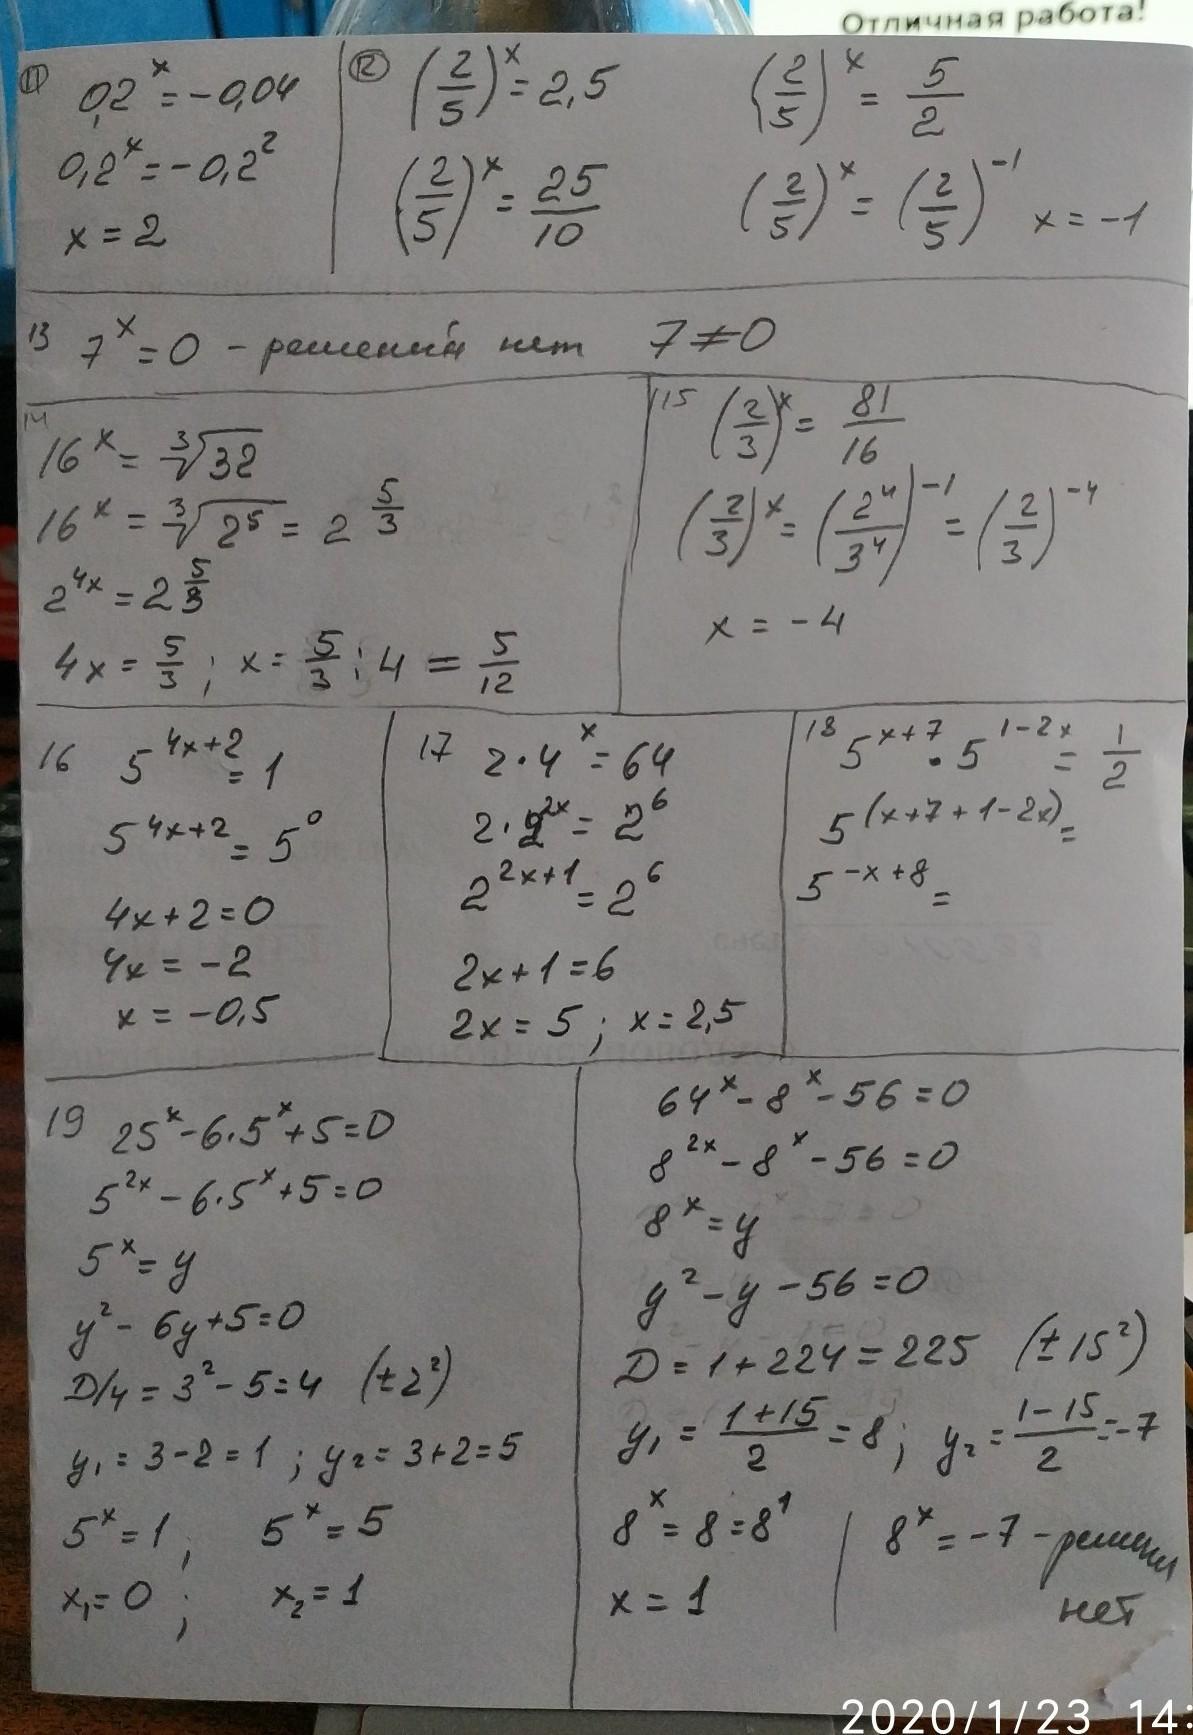 Отличная работа!
11 0,2^x = -0,04
0,2^x = -0,2^2
x = 2
12 (2/5)^x = 2,5
(2/5)^x = 25/10
(2/5)^x = 5/2
(2/5)^x = (2/5)^-1 x = -1
13 7^x = 0 - решений нет 7 ≠ 0
14
16^x = ∛32
16^x = ∛2^5 = 2^5/3
2^4x = 2^5/3
4x = 5/3 ; x = 5/3 : 4 = 5/12
115 (2/3)^x = 81/16
(2/3)^x = (2^4/3^4)^-1 = (2/3)^-4
x = -4
16 5^4x+2 = 1
5^4x+2 = 5^0
4x+2=0
4x = -2
x = -0,5
17 2·4^x = 64
2·2^2x = 2^6
2^2x+1 = 2^6
2x+1=6
2x = 5 ; x = 2,5
18 5^x+7 · 5^1-2x = 1/2
5^(x+7+1-2x) =
5^-x+8 =
19 25^x - 6·5^x + 5 = 0
5^2x - 6·5^x + 5 = 0
5^x = y
y^2 - 6y + 5 = 0
D/4 = 3^2 - 5 = 4 (±2^2)
y1 = 3-2 = 1 ; y2 = 3+2 = 5
5^x = 1 ; 5^x = 5
x1 = 0 ; x2 = 1
64^x - 8^x - 56 = 0
8^2x - 8^x - 56 = 0
8^x = y
y^2 - y - 56 = 0
D = 1 + 224 = 225 (±15^2)
y1 = 1+15/2 = 8 ; y2 = 1-15/2 = -7
8^x = 8 = 8^1
x = 1
8^x = -7 -
нет
2020/1/23 14: